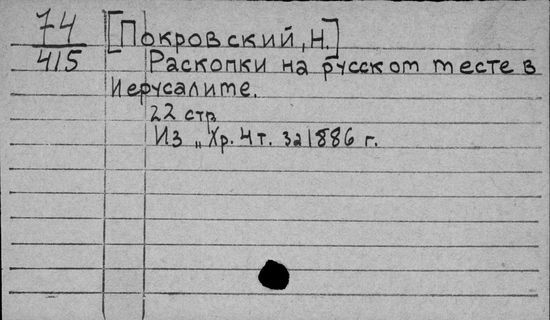 74
415
[Покровский, Н.]
Раскопки на русском месте в
Иерусалиме.
22 стр
Из „Хр. Чт. за 1886 г.